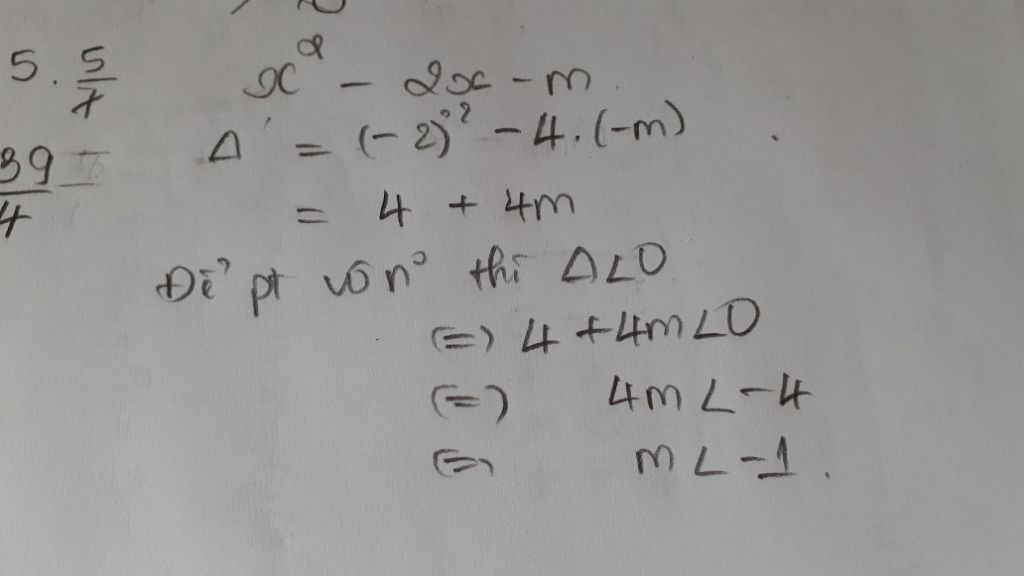 5. 5/7
x² - 2x - m
39/4
Δ = (-2)² - 4.(-m)
= 4 + 4m
Để pt vô n° thì Δ < 0
(=) 4 + 4m < 0
(=) 4m < -4
(=) m < -1.